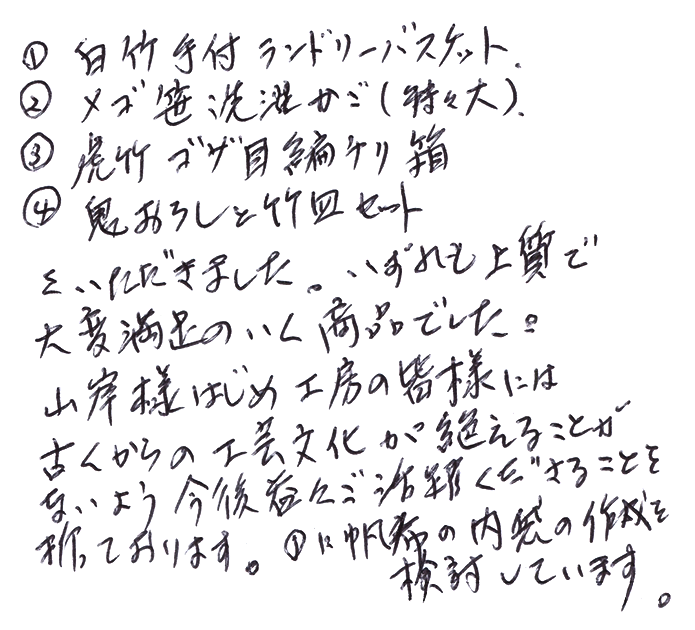 ① 白竹手付ランドリーバスケット.
② メゴ笹洗濯かご(特々大).
③ 虎竹ゴザ目編ケリ箱
④ 鬼おろしと竹皿セット
をいただきました。いずれも上質で
大変満足のいく商品でした。
山岸様はじめ工房の皆様には
古くからの工芸文化が絶えることが
ないよう今後益々ご活躍くださることを
祈っております。①に帆布の内袋の作成を
検討しています。